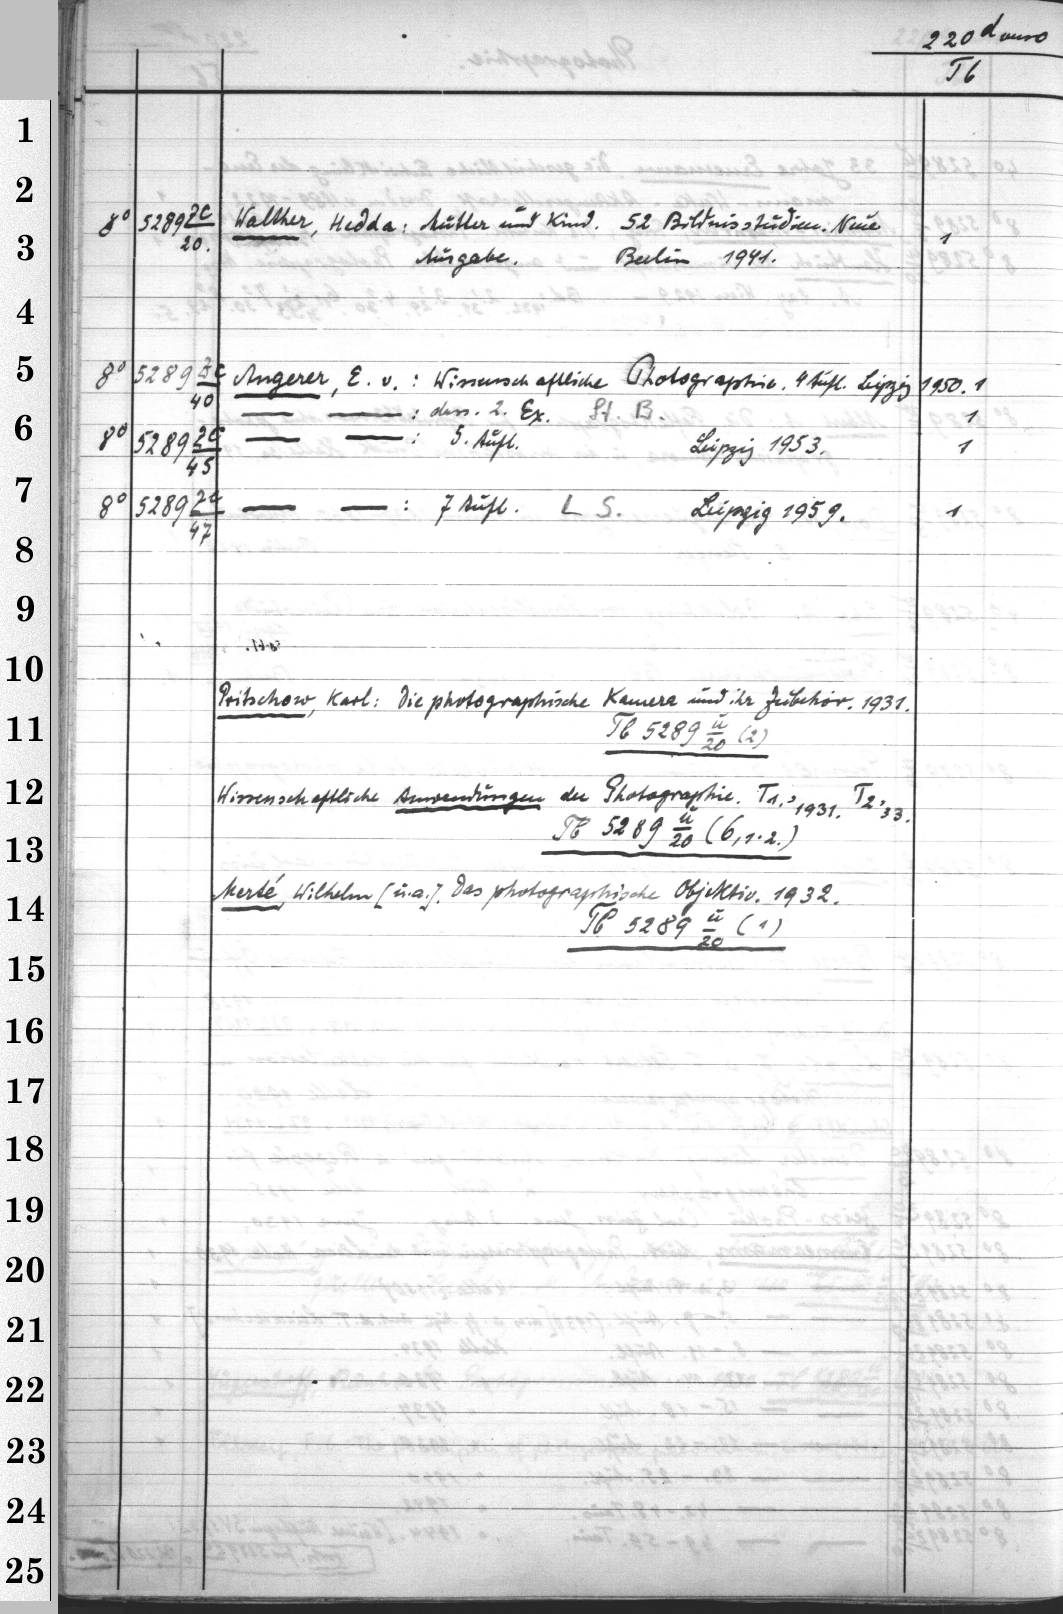 220 d verso
Tb
1
2
8° 5289 2c/20. Walther, Hedda: Mutter und Kind. 52 Bildnisstudien. Neue
3
Ausgabe. Berlin 1941. 1
4
5
8° 5289 2c/40 Angerer, E. v.: Wissenschaftliche Photographie. 4 Aufl. Leipzig 1950. 1
— — : dass. 2. Ex. St. B. 1
6
8° 5289 2c/45 — — : 5. Aufl. Leipzig 1953. 1
7
8° 5289 2c/47 — — : 7 Aufl. L S. Leipzig 1959. 1
8
9
10
Pritschow, Karl: Die photographische Kamera und ihr Zubehör. 1931.
11
Tb 5289 u/20 (2)
12
Wissenschaftliche Anwendungen der Photographie. T1., 1931. T2, 33.
13
Tb 5289 u/20 (6,1.2.)
14
Merté, Wilhelm [u.a.]. Das photographische Objektiv. 1932.
Tb 5289 u/20 (1)
15
16
17
18
19
20
21
22
23
24
25